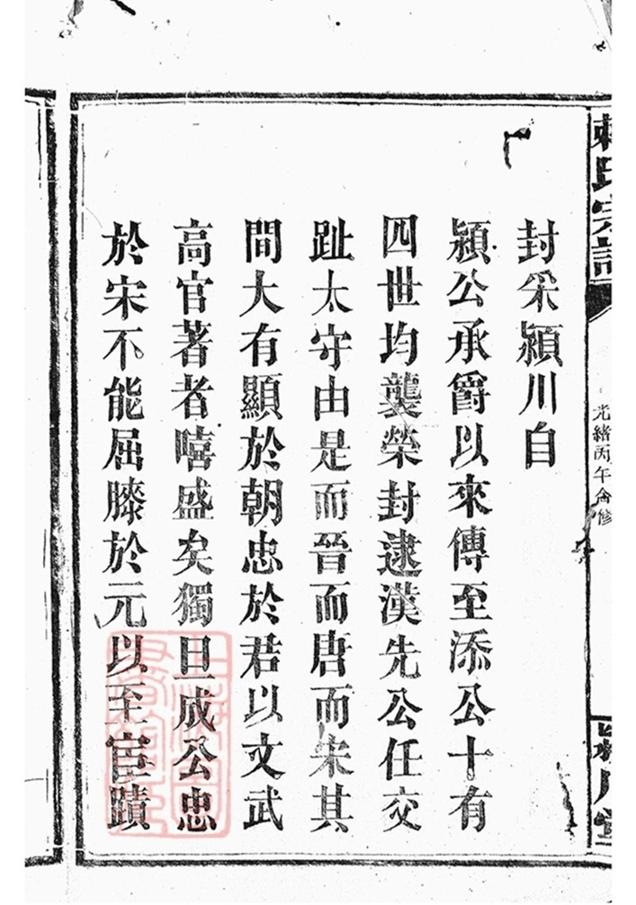 氏宗譜
光緒丙午修
封采潁川自
潁公承爵以來傳至添公十有
四世均襲榮封逮漢先公任交
趾太守由是而晉而唐而宋其
間大有顯於朝忠於君以文武
高官著者嘻盛矣獨旦成公忠
於宋不能屈膝於元以至宦蹟